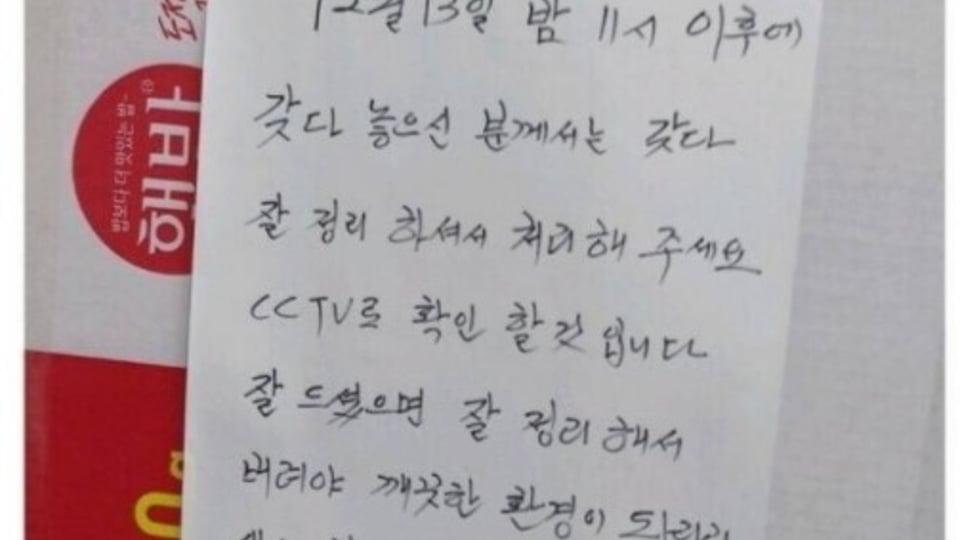 12월 13일 밤 11시 이후에
갖다 놓으신 분께서는 갖다
잘 정리 하셔서 처리해 주세요
CCTV로 확인 할것 입니다
잘 드셨으면 잘 정리해서
버려야 깨끗한 환경이
햇바
밤보다 더 맛있는 밤~